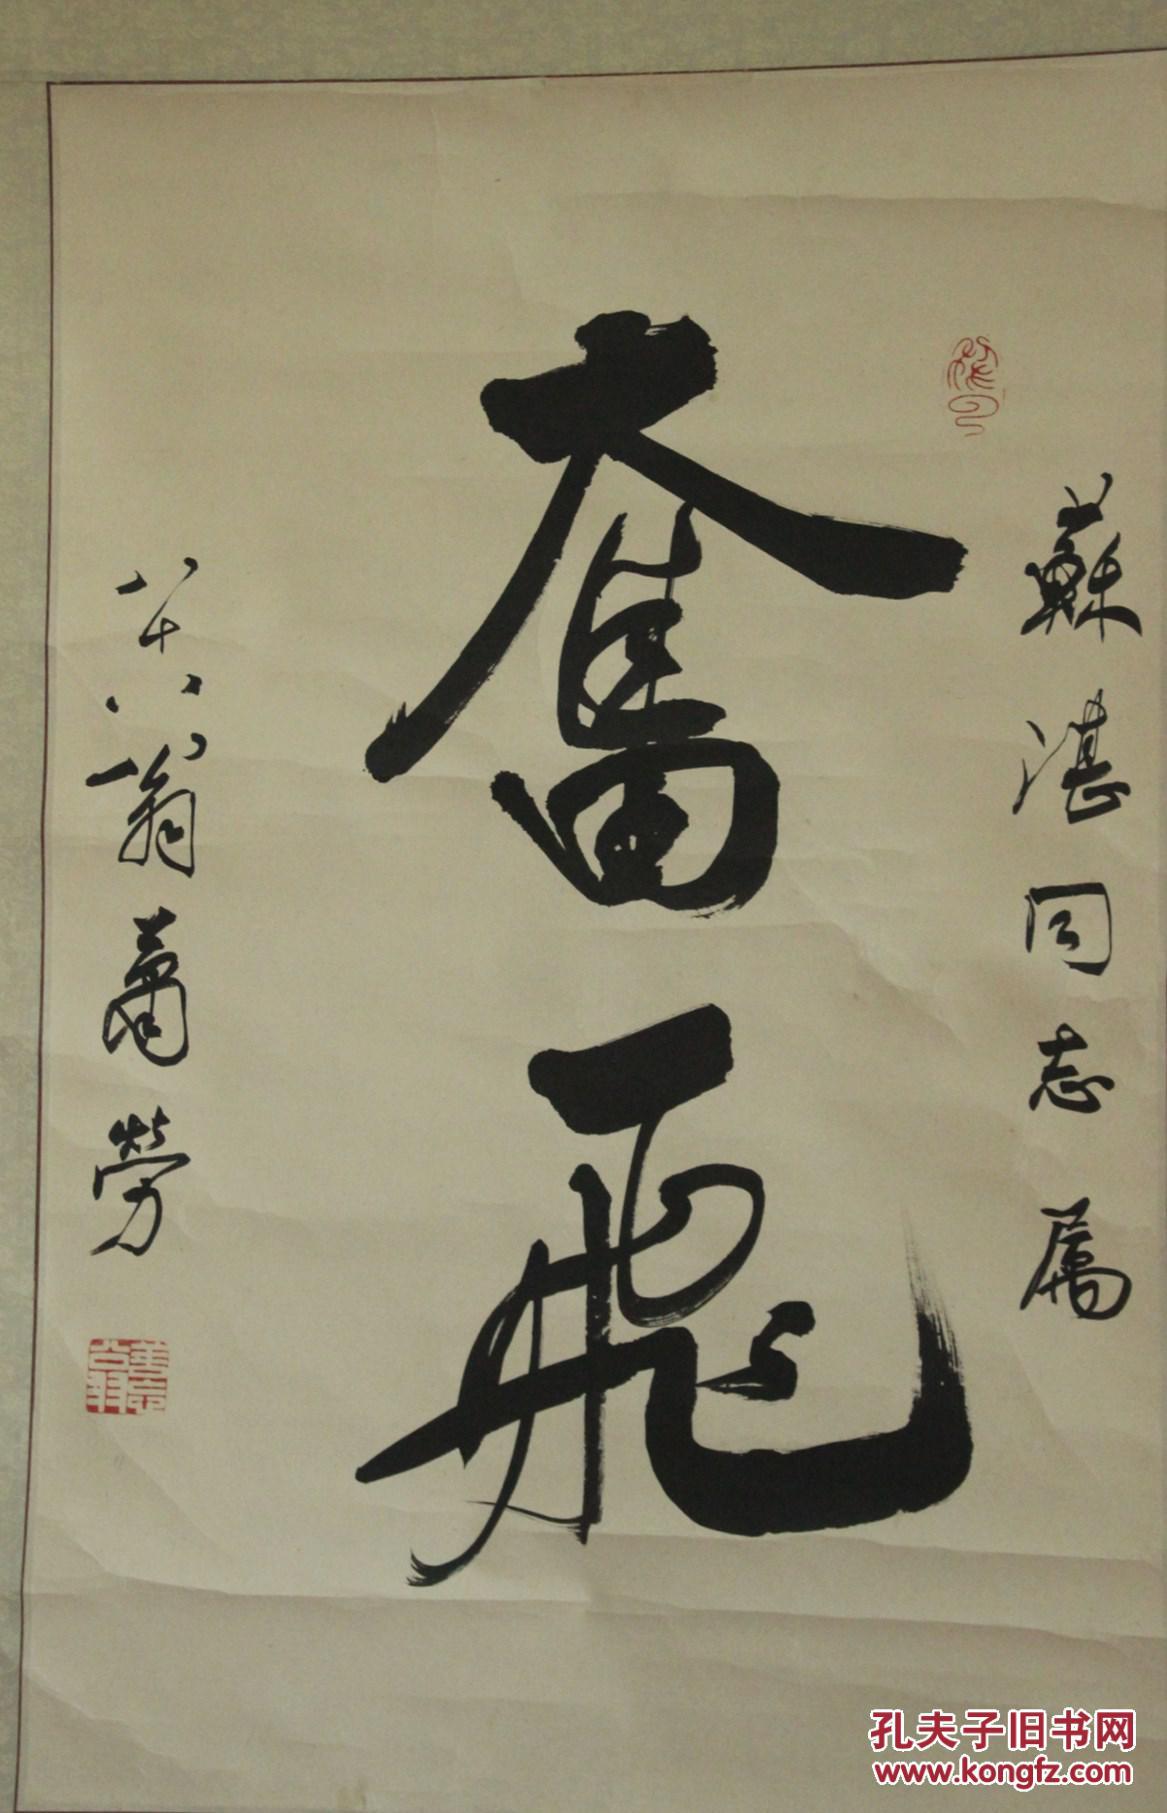 蘇湛同志属
奮飛
八十八翁蕭勞
孔夫子旧书网
www.kongfz.com